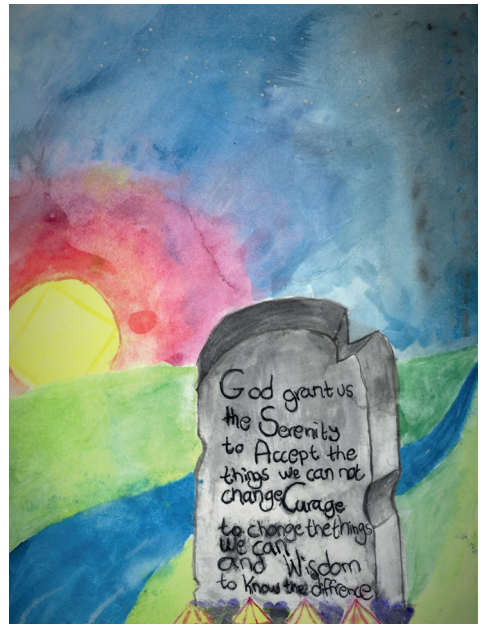 God grant us
the Serenity
to Accept the
things we can not
change Curage
to change the things
we can
and Wisdom
to know the diffrence